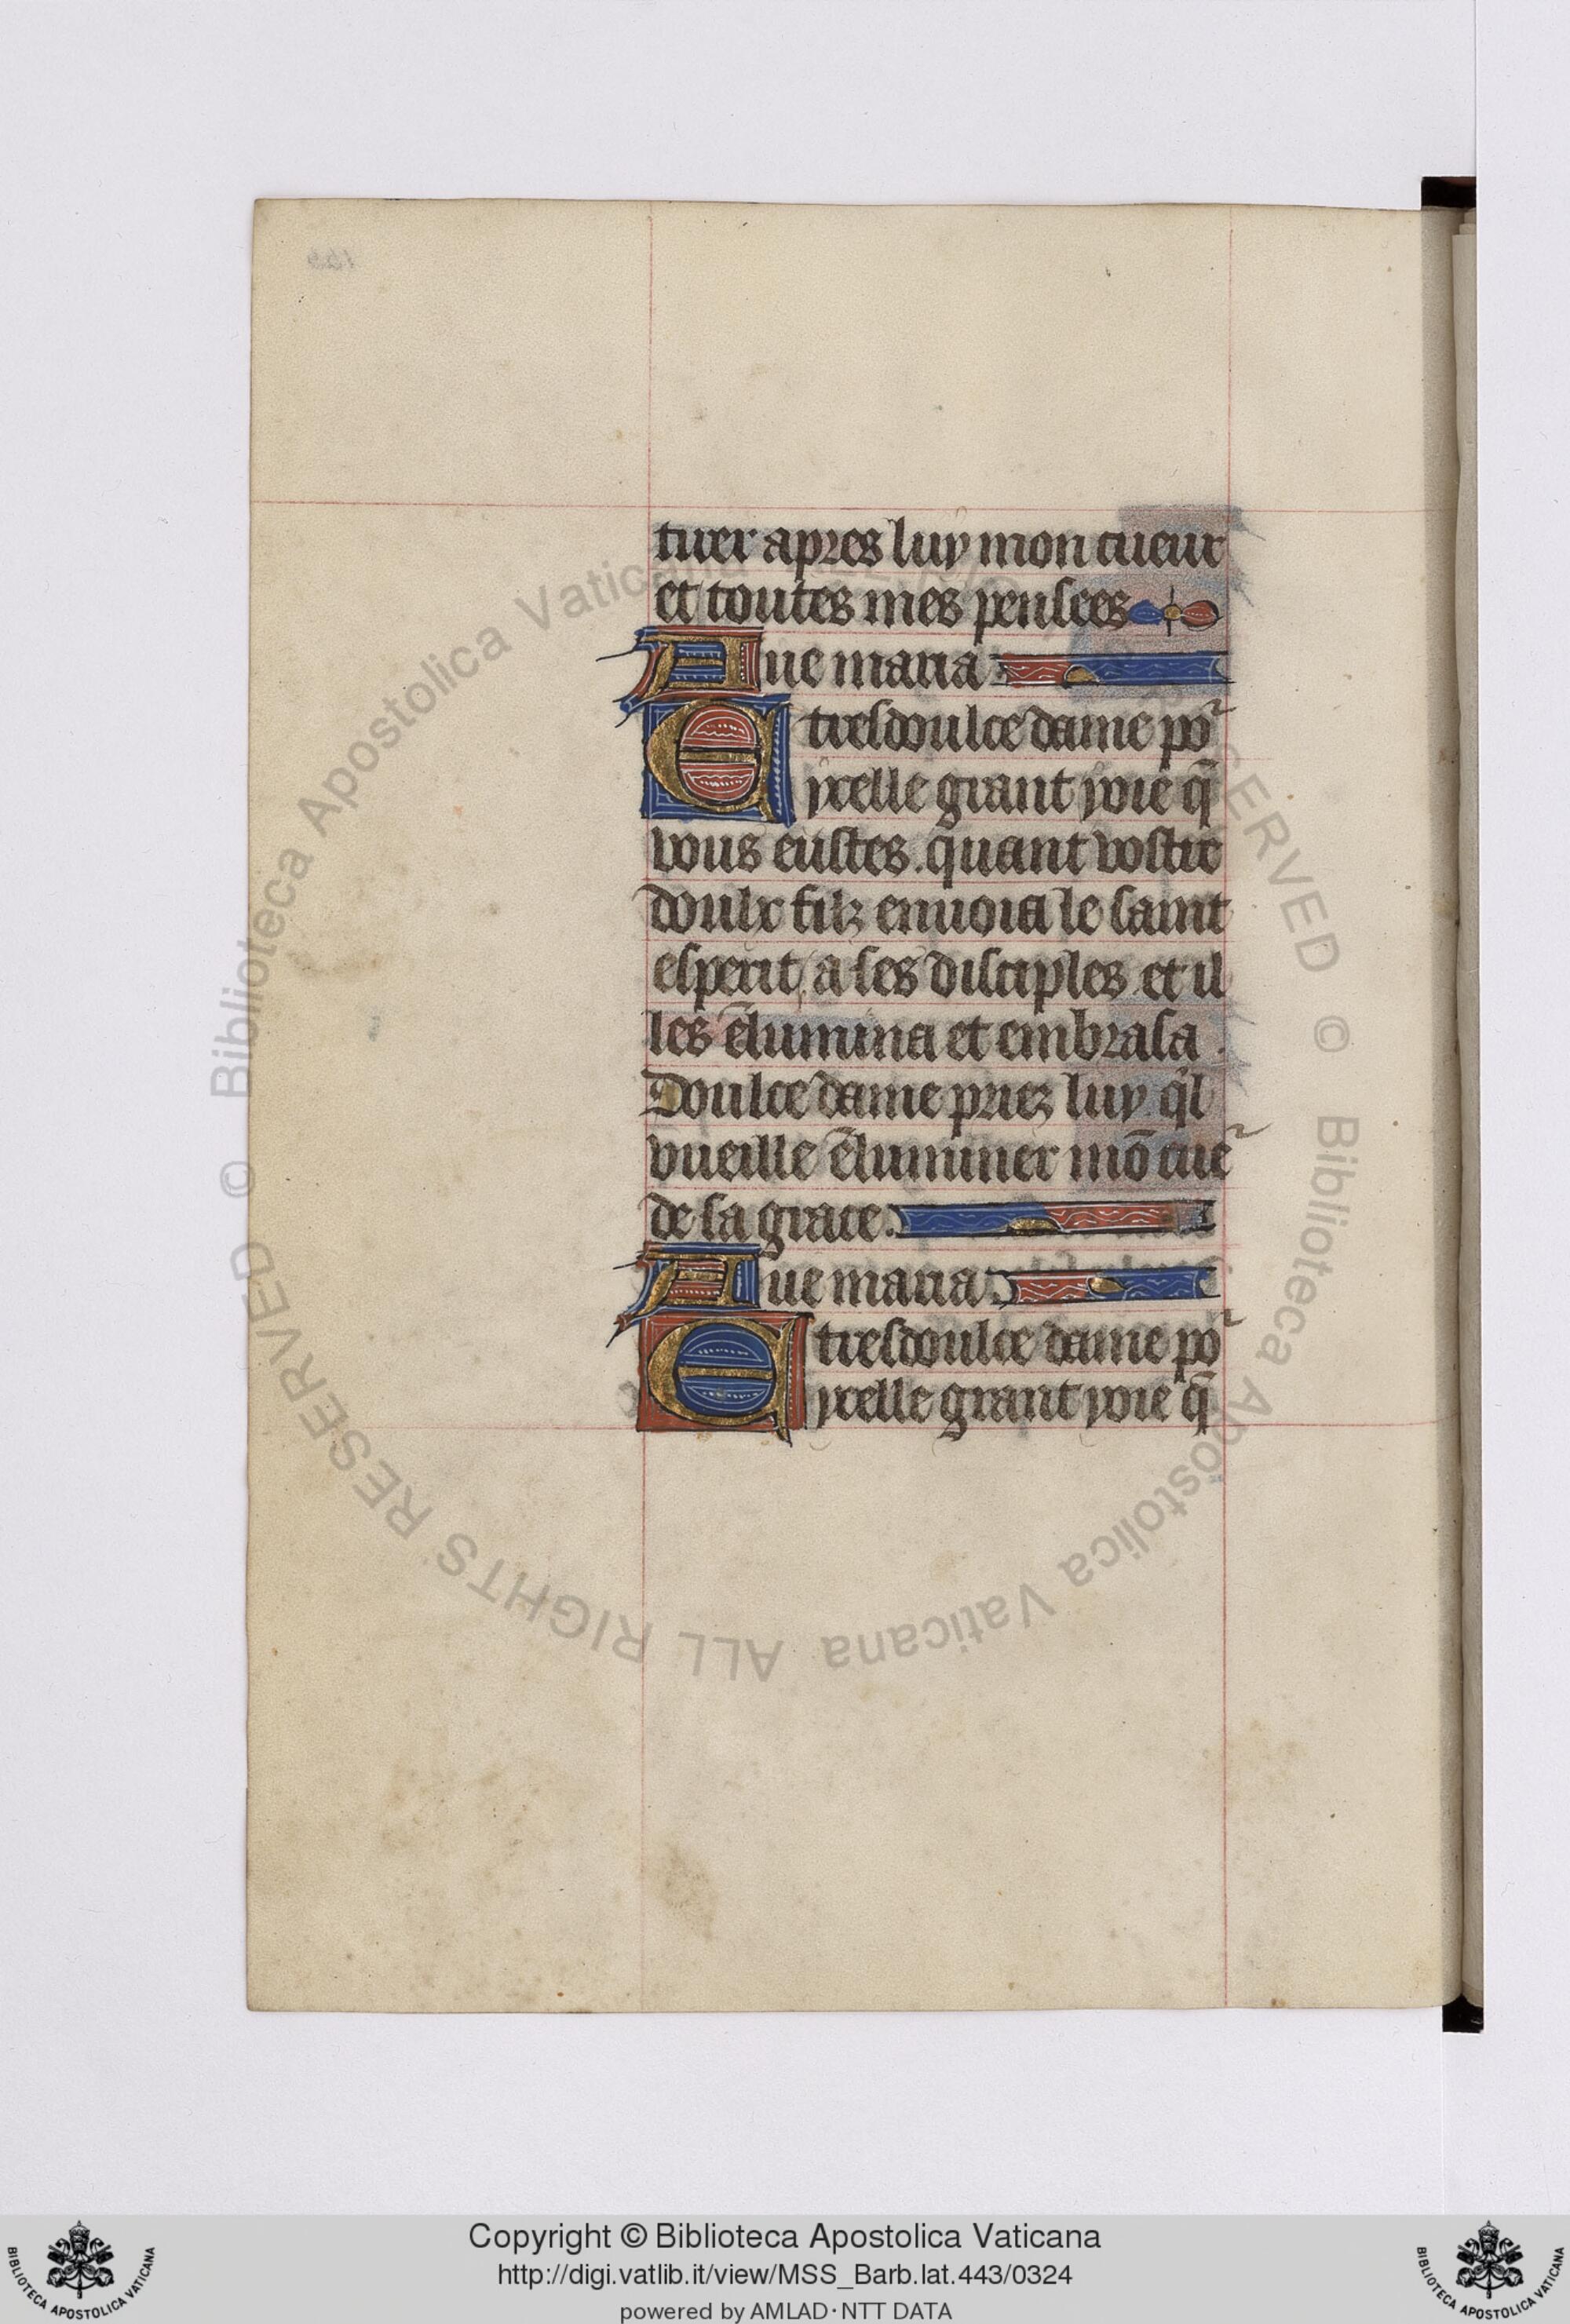 tirer apres luy mon cueur
et toutes mes pensees
Aue maria.
E tresdoulce dame po᷑
ycelle grant ioie q̄
vous eustes. quant vostre
doulx filz enuoia le saint
esperit, a ses disciples. et il
les ēlumina et embrasa.
Doulce dame priez luy. q'l
vueille ēluminer mō cue᷑
de sa grace.
Aue maria.
E tresdoulce dame po᷑
ycelle grant ioie q̄
© Biblioteca Apostolica Vaticana ALL RIGHTS RESERVED © Biblioteca Apostolica Vaticana ALL RIGHTS RESERVED
Copyright © Biblioteca Apostolica Vaticana
http://digi.vatlib.it/view/MSS_Barb.lat.443/0324
powered by AMLAD·NTT DATA
BIBLIOTECA APOSTOLICA VATICANA
BIBLIOTECA APOSTOLICA VATICANA